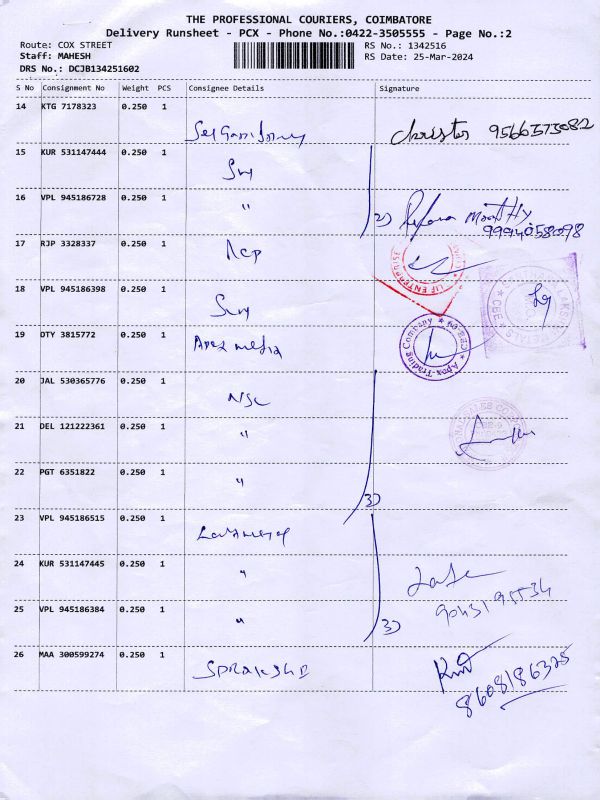 THE PROFESSIONAL COURIERS, COIMBATORE
Delivery Runsheet - PCX - Phone No.:0422-3505555 - Page No.:2
Route: COX STREET
RS No.: 1342516
Staff: MAHESH
RS Date: 25-Mar-2024
DRS No.: DCJB134251602
S No Consignment No Weight PCS Consignee Details Signature
14 KTG 7178323 0.250 1
Christo 9566373082
15 KUR 531147444 0.250 1
16 VPL 945186728 0.250 1
"
2) Moorthy
9994058098
17 RJP 3328337 0.250 1
18 VPL 945186398 0.250 1
19 DTY 3815772 0.250 1
Apex media
Apox Trading Company
20 JAL 530365776 0.250 1
NSC
21 DEL 121222361 0.250 1
"
22 PGT 6351822 0.250 1
"
3)
23 VPL 945186515 0.250 1
24 KUR 531147445 0.250 1
"
25 VPL 945186384 0.250 1
"
3)
9043195534
26 MAA 300599274 0.250 1
8608186328